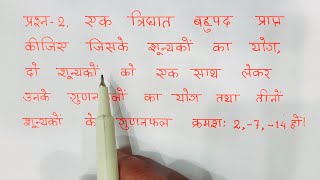 प्रश्न-2. एक त्रिघात बहुपद प्राप्त
कीजिए जिसके शून्यकों का योग,
दो शून्यकों को एक साथ लेकर
उनके गुणनफलों का योग तथा तीनों
शून्यकों के गुणनफल क्रमशः 2,-7,-14 हो।